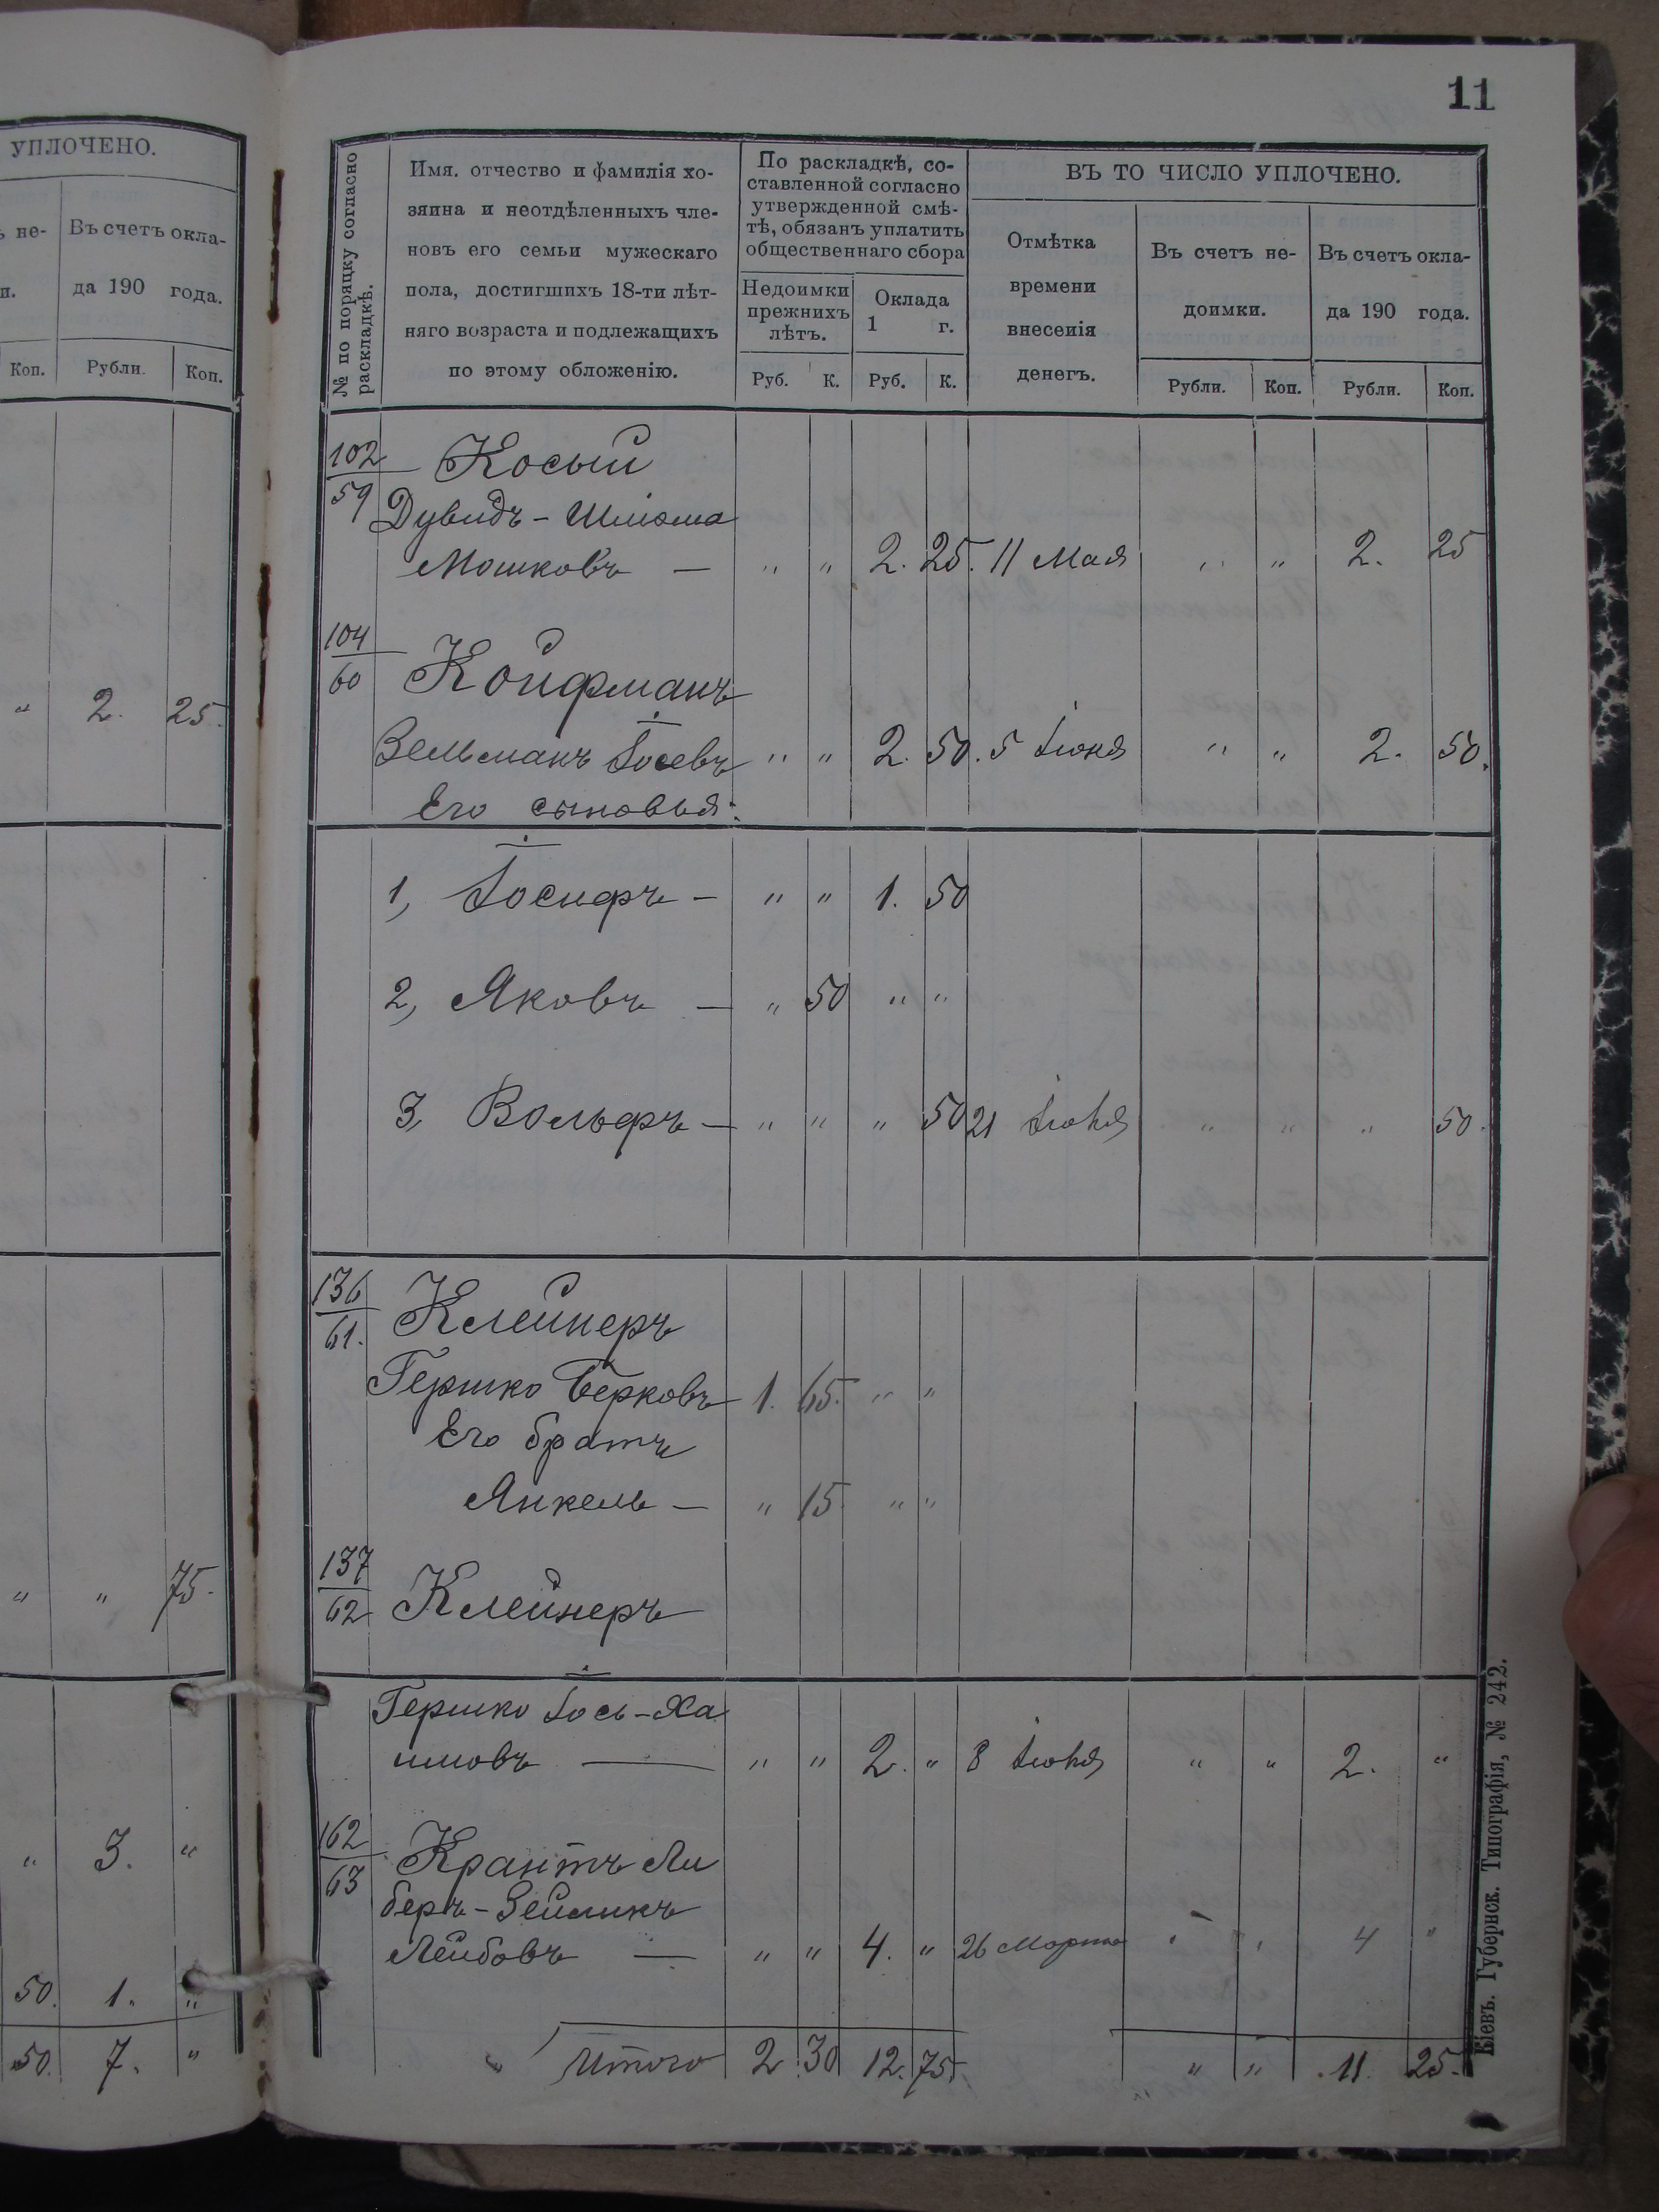 УПЛОЧЕНО.
ъ не-
Въ счетъ окла-
и.
да 190 года.
Коп. Рубли. Коп.
" 2. 25.
" " 75.
" 3. "
50. 1. "
50. 7. "
11
№ по порядку согласно
раскладкѣ.
Имя. отчество и фамилія хо-
зяина и неотдѣленныхъ чле-
новъ его семьи мужескаго
пола, достигшихъ 18-ти лѣт-
няго возраста и подлежащихъ
по этому обложенію.
По раскладкѣ, со-
ставленной согласно
утвержденной смѣ-
тѣ, обязанъ уплатить
общественнаго сбора
Недоимки
прежнихъ
лѣтъ.
Оклада
1 г.
Руб. К. Руб. К.
ВЪ ТО ЧИСЛО УПЛОЧЕНО.
Отмѣтка
времени
внесенія
денегъ.
Въ счетъ не-
доимки.
Въ счетъ окла-
да 190 года.
Рубли. Коп. Рубли. Коп.
102
59
Косый
Дувидъ - Шліома
Мошковъ — " " 2. 25. 11 Мая " " 2. 25
104
60
Койфманъ
Зельманъ Іосевъ " " 2. 50. 5 Іюня " " 2. 50.
Его сыновья:
1, Іосифъ - " " 1. 50
2, Яковъ — " 50 " "
3, Вольфъ — " " " 50 21 Іюня " " " 50.
136
61.
Клейнеръ
Гершко Берковъ 1. 65. " "
Его братъ
Янкель — " 15 " "
137
62
Клейнеръ
Гершко Іось-Ха
имовъ — " " 2. " 8 Іюня " " 2. "
162
63
Крантъ Ли
беръ - Зейликъ
Лейбовъ — " " 4. " 26 Марта " " 4 "
Итого 2 30 12. 75. " " 11. 25.
Кіевъ. Губернск. Типографія, № 242.